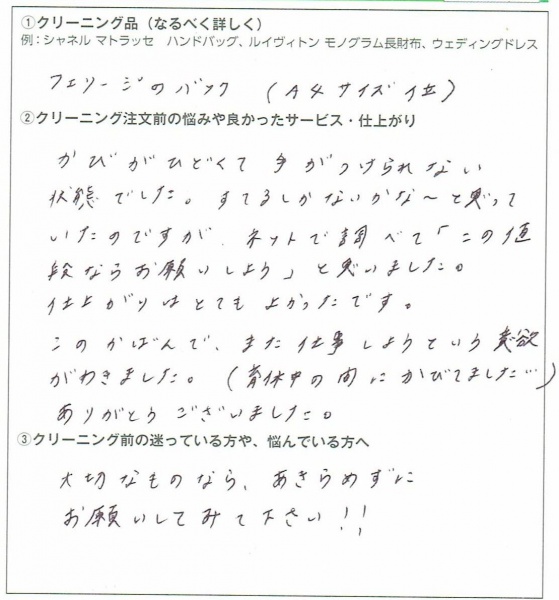 ①クリーニング品（なるべく詳しく）
例：シャネル マトラッセ　ハンドバッグ、ルイヴィトン モノグラム長財布、ウェディングドレス
フェリージのバック　（A4サイズ位）
②クリーニング注文前の悩みや良かったサービス・仕上がり
かびがひどくて手がつけられない
状態でした。すてるしかないかな〜と思って
いたのですが、ネットで調べて「この値
段ならお願いしよう」と思いました。
仕上がりはとてもよかったです。
このかばんで、また仕事しようという意欲
がわきました。（育休中の間にかびてました…）
ありがとうございました。
③クリーニング前の迷っている方や、悩んでいる方へ
大切なものなら、あきらめずに
お願いしてみて下さい!!